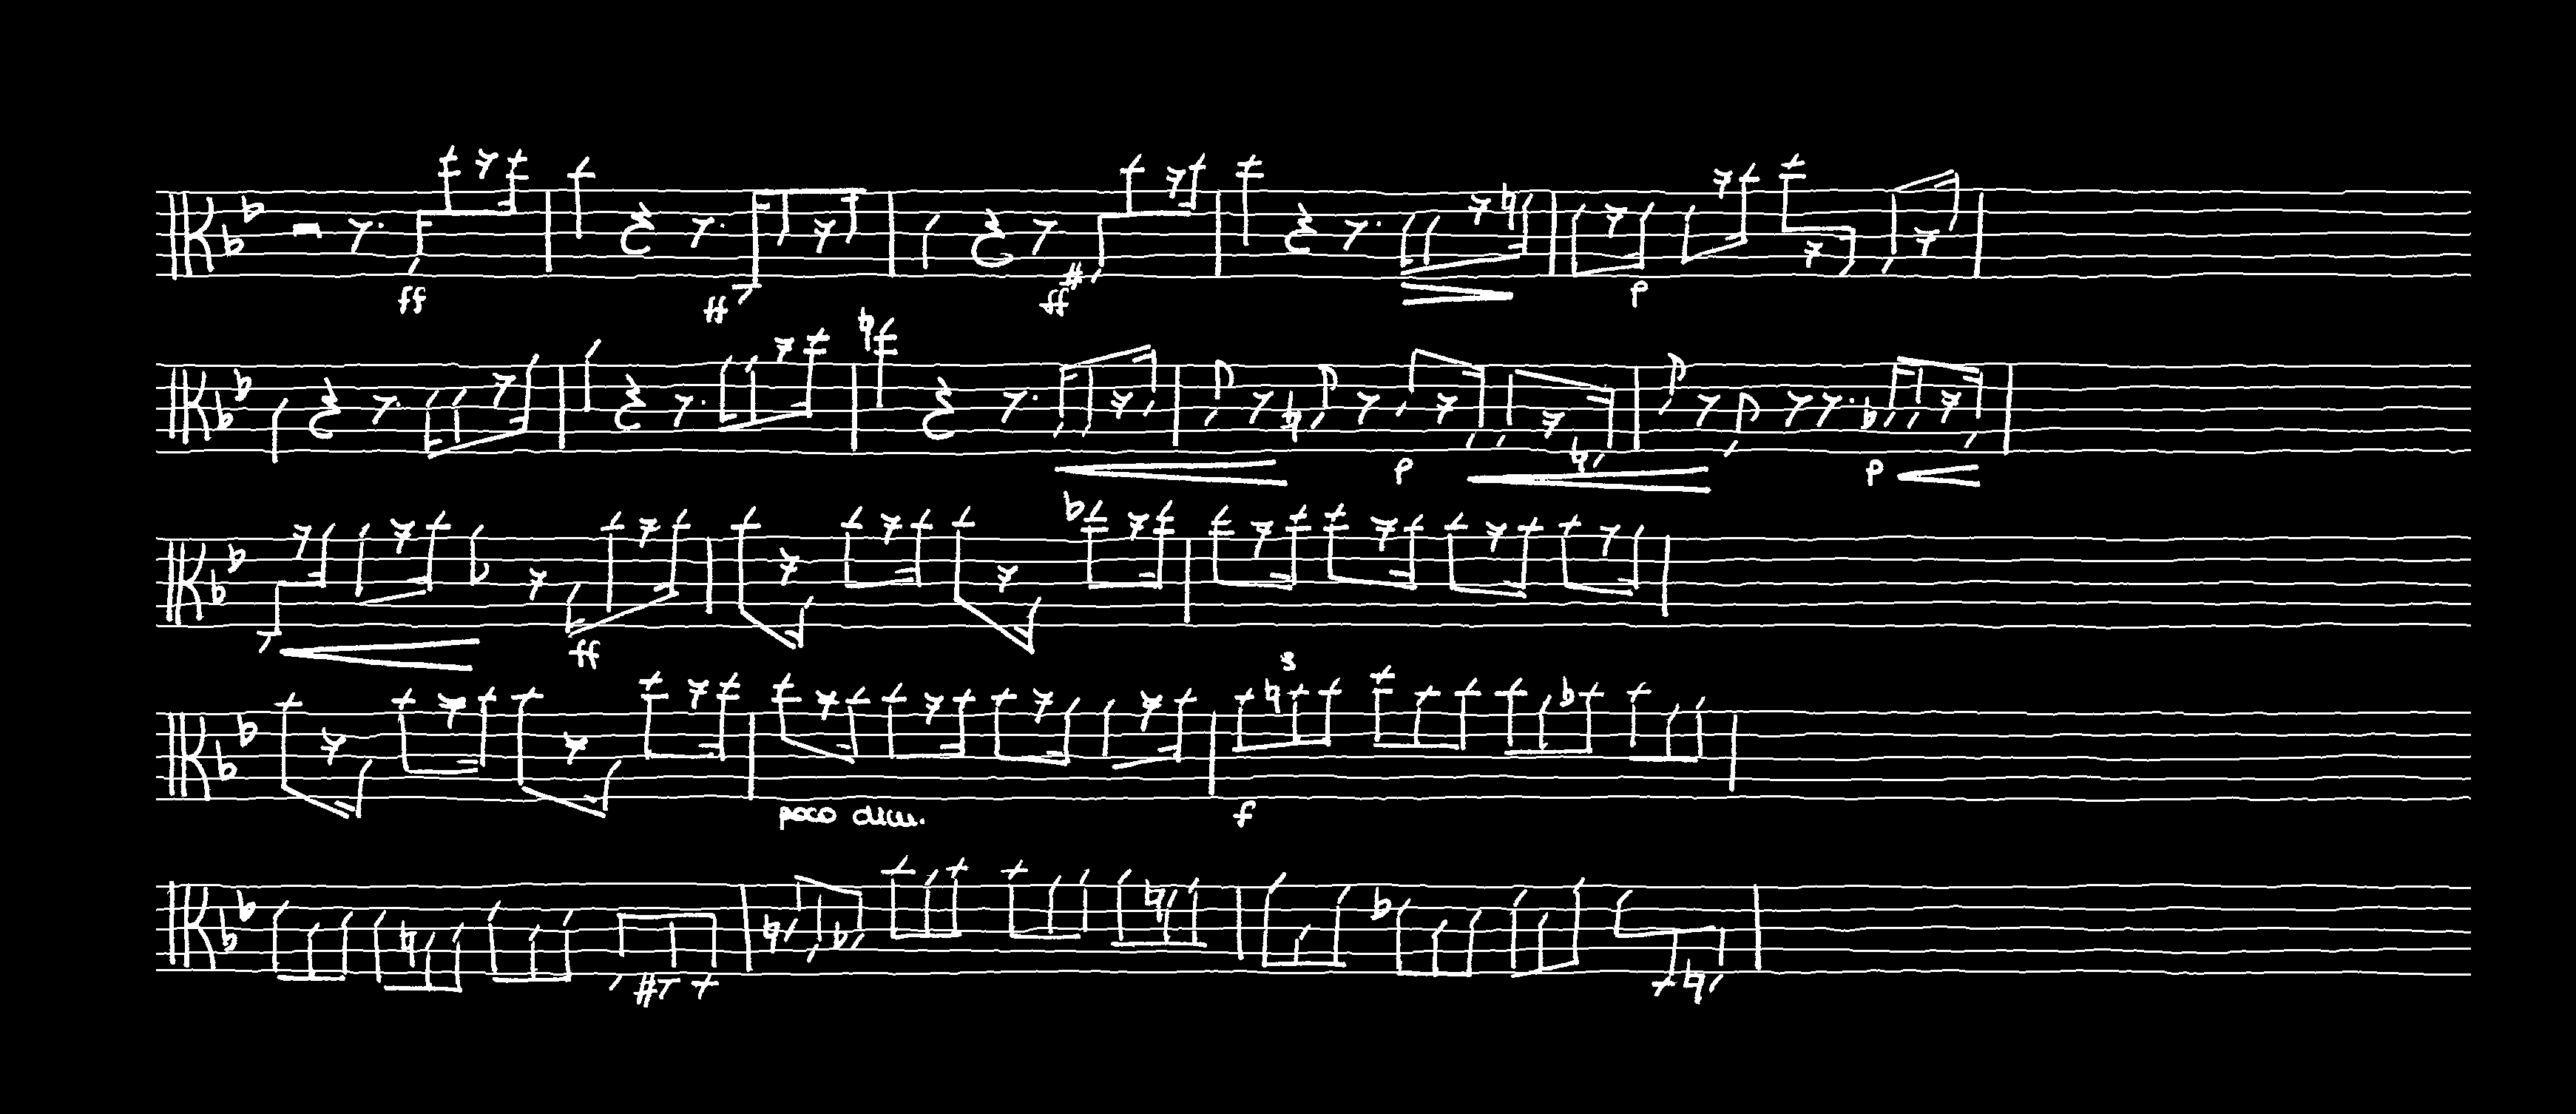 ff ff ff p
p p
ff
3
poco dim.
f